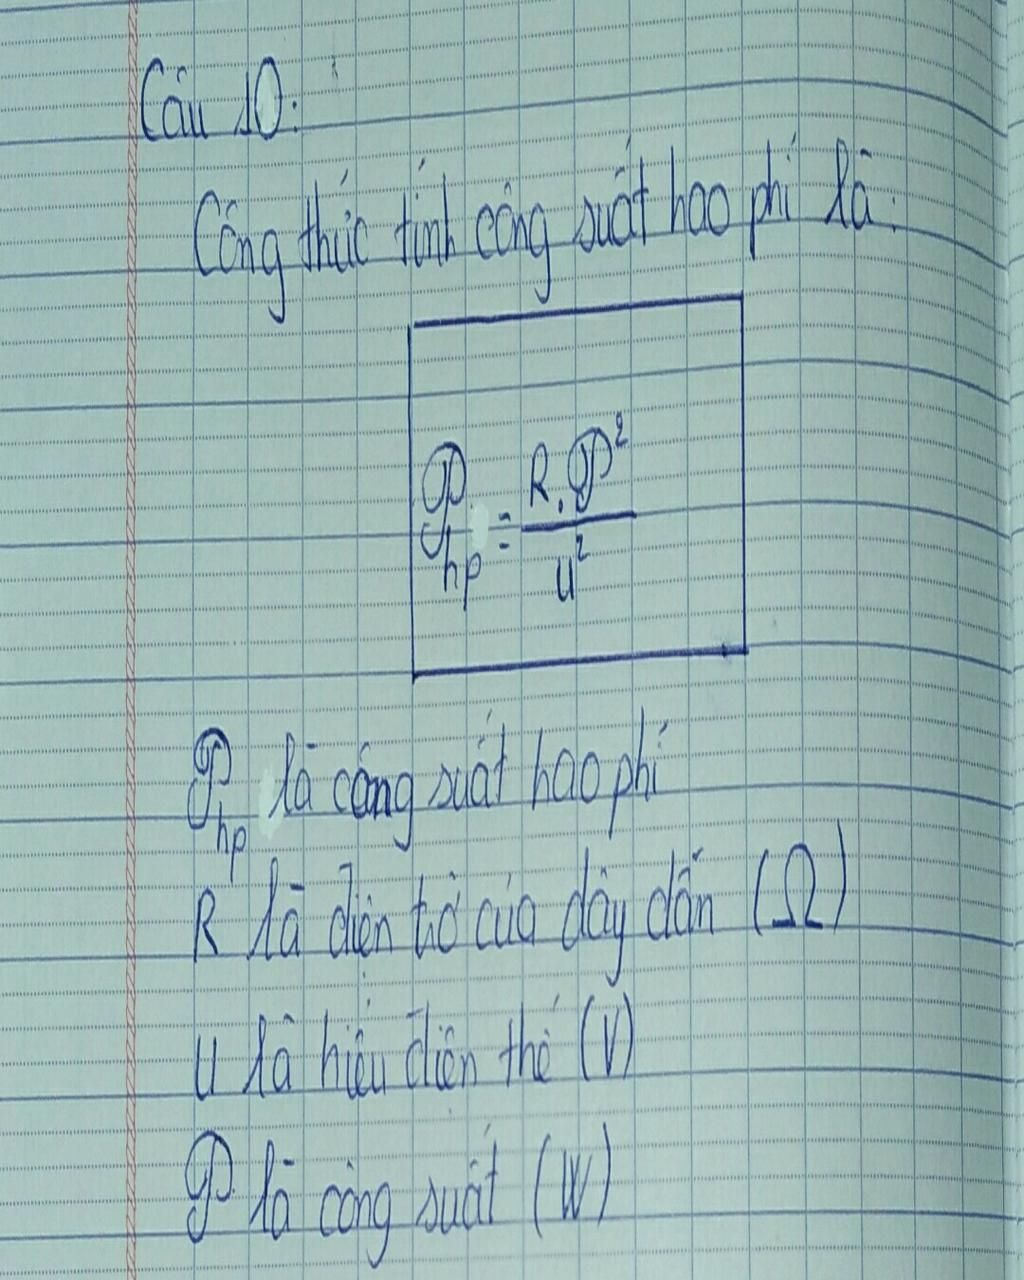 Câu 10:
Công thức tính công suất hao phí là:
𝒫hp = R.𝒫² / U²
𝒫hp là công suất hao phí
R là điện trở của dây dẫn (Ω)
U là hiệu điện thế (V)
𝒫 là công suất (W)